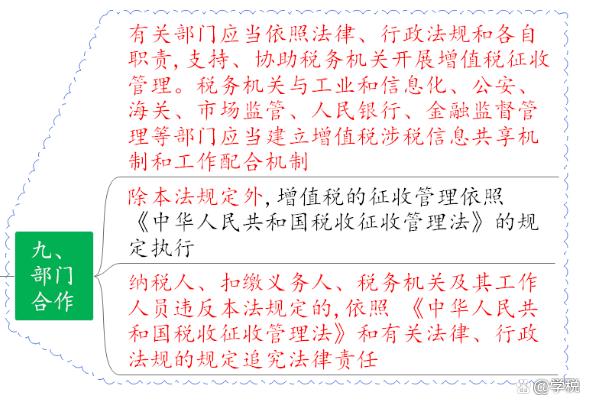 有关部门应当依照法律、行政法规和各自
职责,支持、协助税务机关开展增值税征收
管理。税务机关与工业和信息化、公安、
海关、市场监管、人民银行、金融监督管
理等部门应当建立增值税涉税信息共享机
制和工作配合机制
九、
部门
合作
除本法规定外,增值税的征收管理依照
《中华人民共和国税收征收管理法》的规
定执行
纳税人、扣缴义务人、税务机关及其工作
人员违反本法规定的,依照 《中华人民共
和国税收征收管理法》和有关法律、行政
法规的规定追究法律责任
@学税